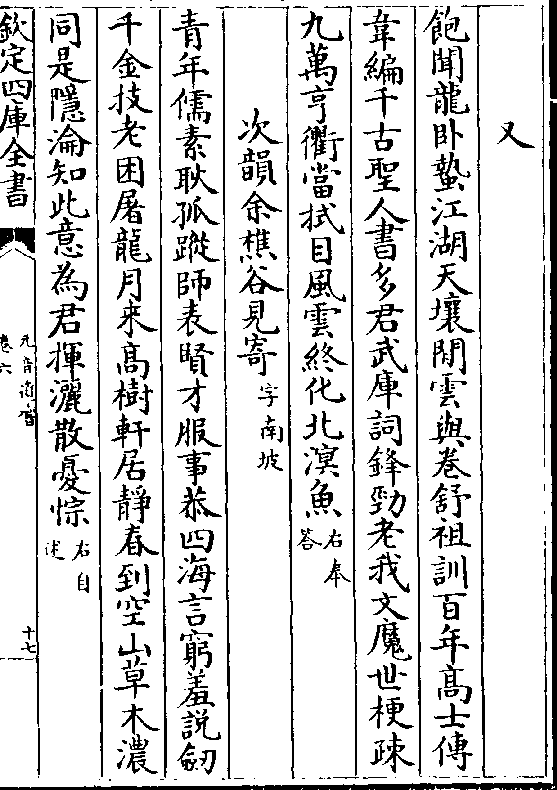 又
飽聞龍卧蟄江湖天壤閒雲與卷舒祖訓百年髙士傳
韋編千古聖人書多君武庫詞鋒勁老我文魔世梗疎
九萬亨衢當拭目風雲終化北溟魚右奉答
次韻余樵谷見寄字南坡
青年儒素耿孤蹤師表賢才服事恭四海言窮羞説劒
千金技老困屠龍月來髙樹軒居靜春到空山草木濃
同是隱淪知此意為君揮灑散憂悰右自述
欽定四庫全書
卷六
十七